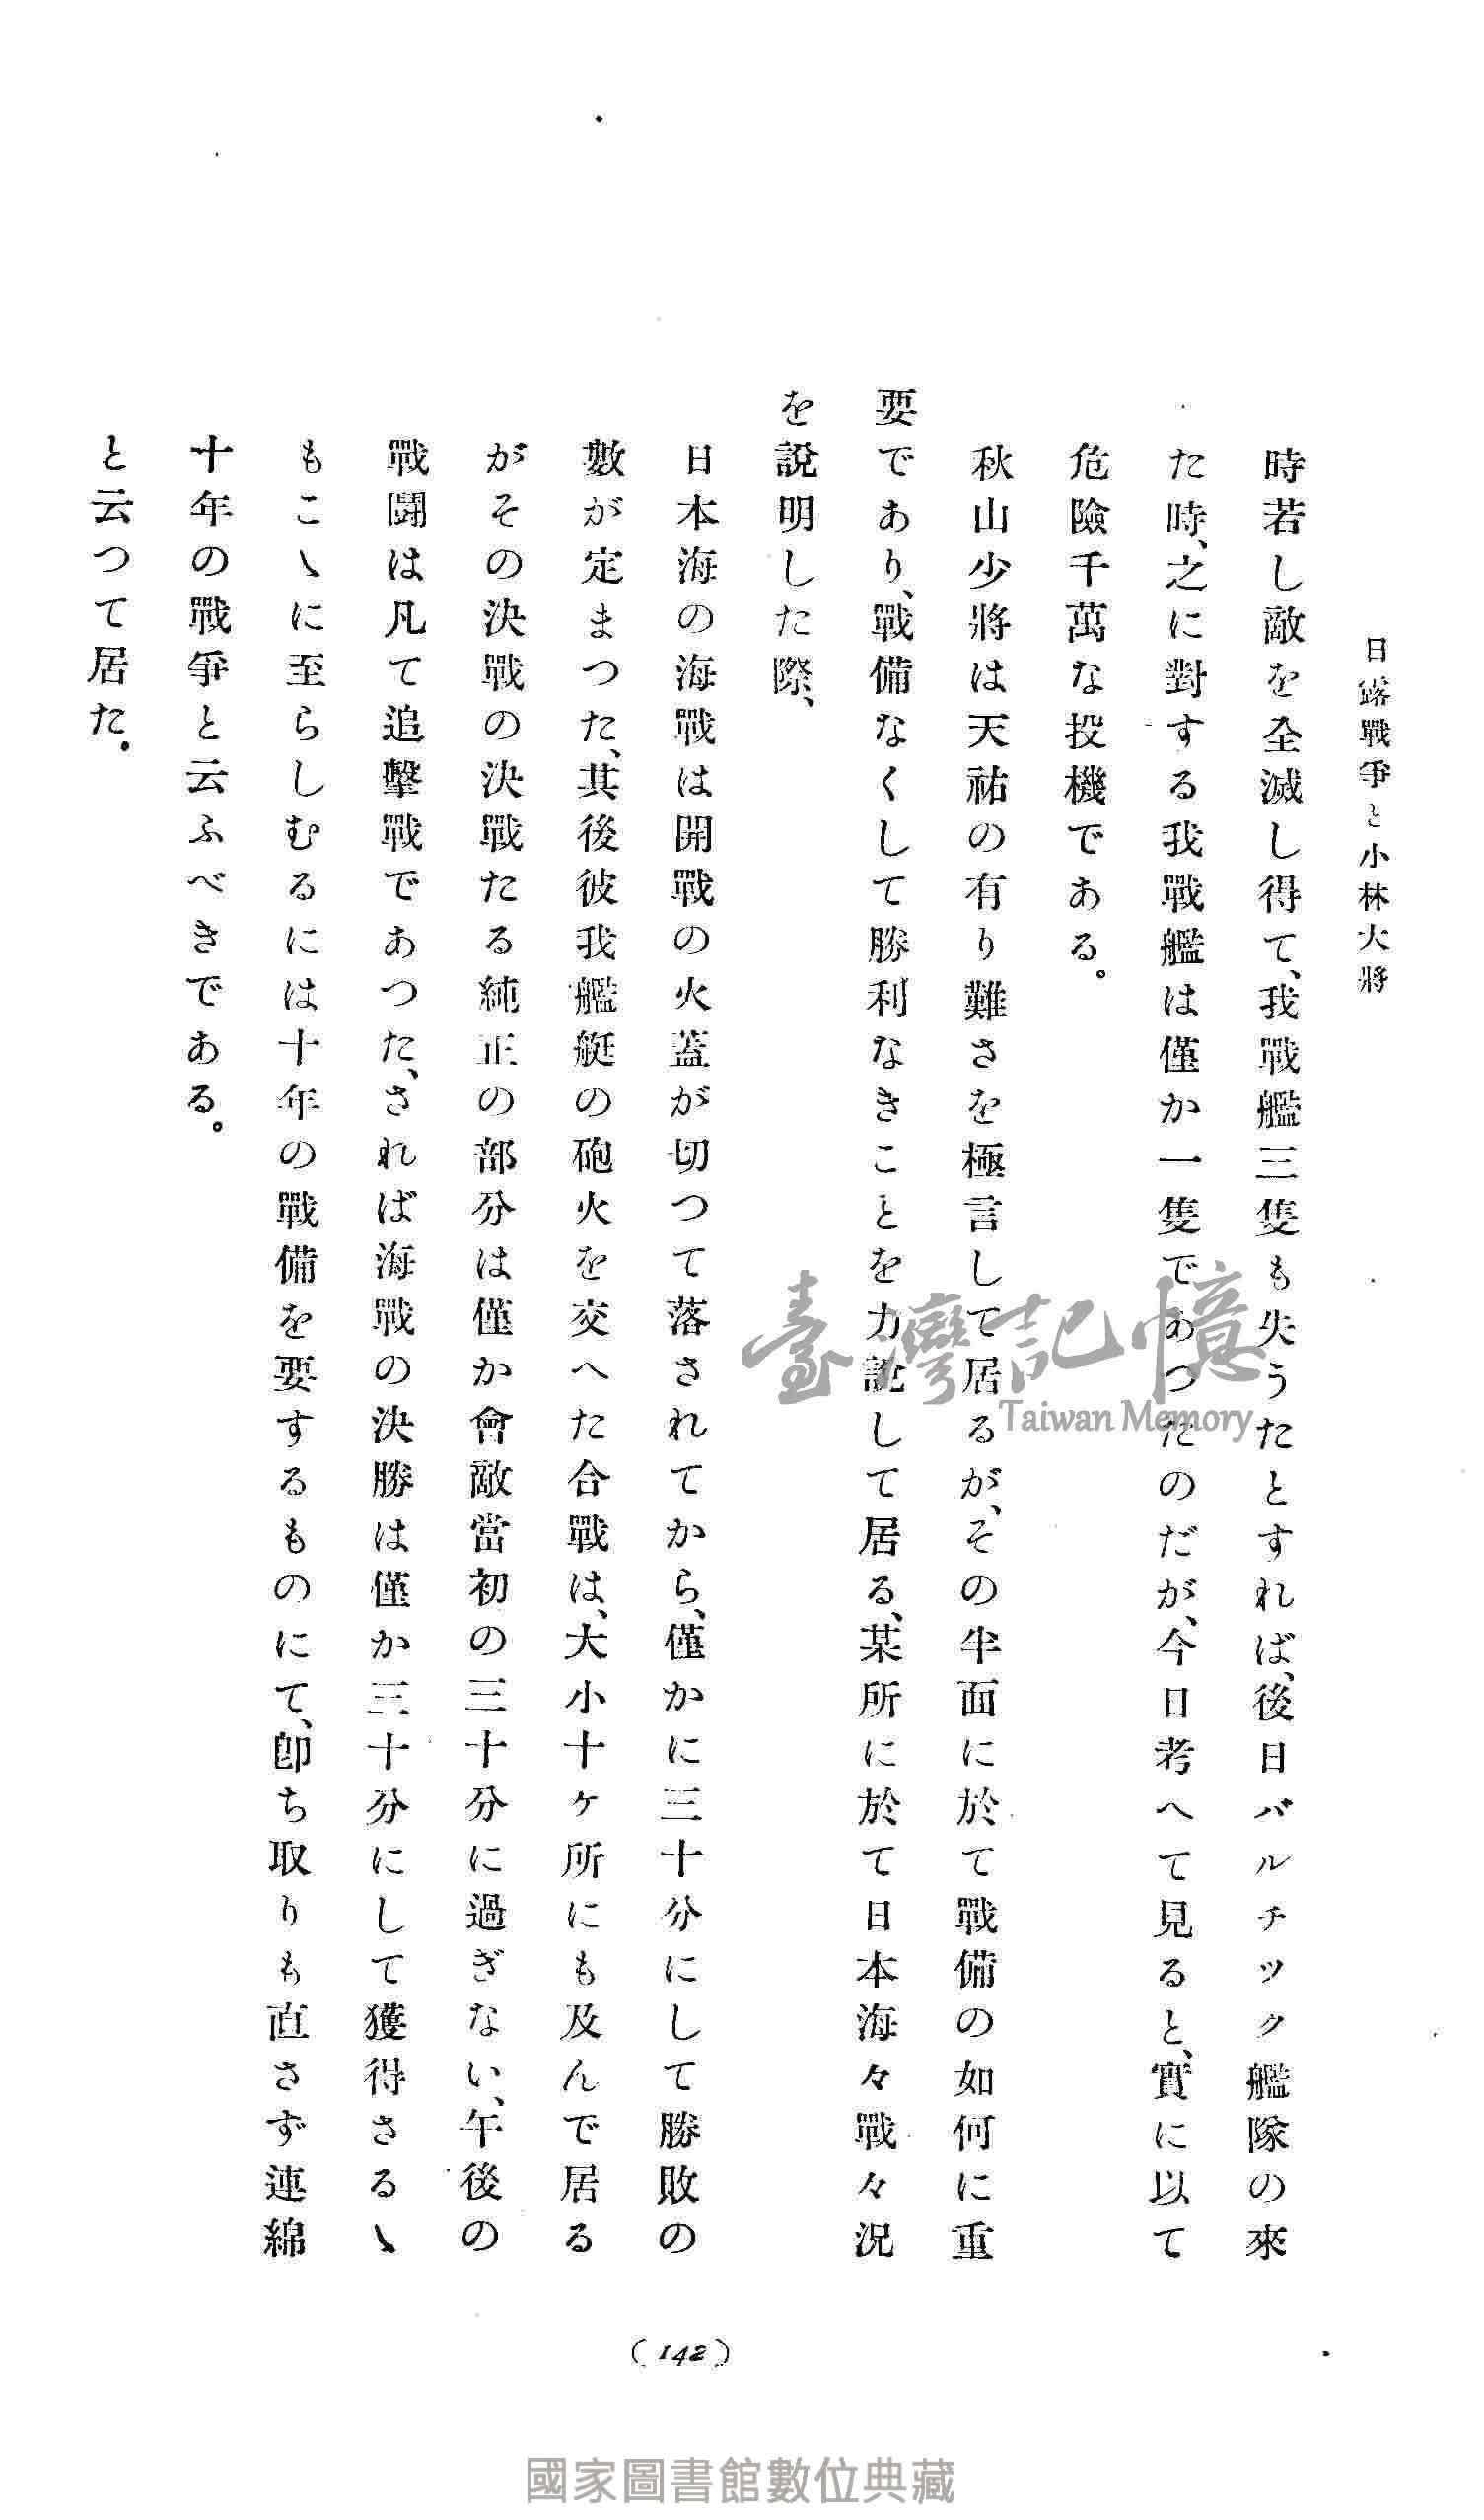 日露戰爭と小林大將
時若し敵を全滅し得て、我戰艦三隻も失うたとすれば、後日バルチック艦隊の來
た時、之に對する我戰艦は僅か一隻であつたのだが、今日考へて見ると、實に以て
危險千萬な投機である。
秋山少將は天祐の有り難さを極言して居るが、その半面に於て戰備の如何に重
要であり、戰備なくして勝利なきことを力說して居る、某所に於て日本海々戰々況
を說明した際、
日本海の海戰は開戰の火蓋が切つて落されてから、僅かに三十分にして勝敗の
數が定まつた、其後彼我艦艇の砲火を交へた合戰は、大小十ヶ所にも及んで居る
がその決戰の決戰たる純正の部分は僅か會敵當初の三十分に過ぎない、午後の
戰鬪は凡て追擊戰であつた、されば海戰の決勝は僅か三十分にして獲得さるゝ
もこゝに至らしむるには十年の戰備を要するものにて、卽ち取りも直さず連綿
十年の戰爭と云ふべきである。
と云つて居た。
(142)
臺灣記憶
Taiwan Memory
國家圖書館數位典藏